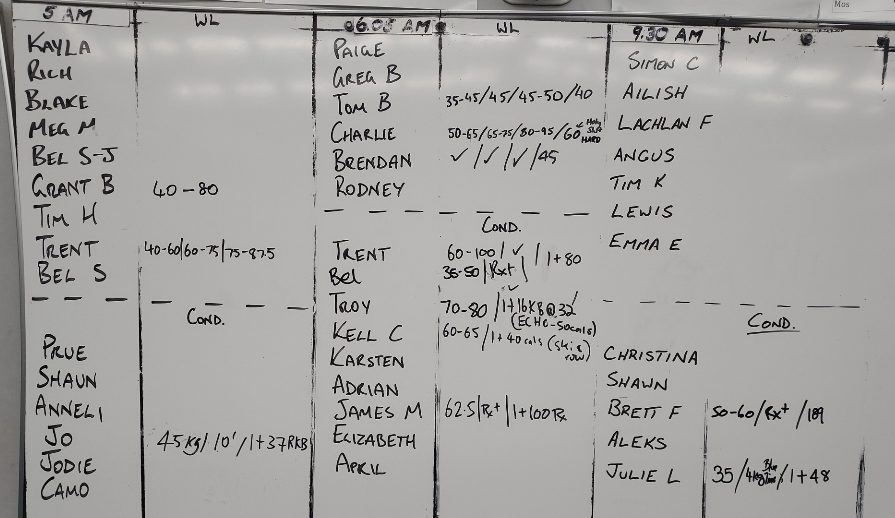 Mos
5 AM WL
KAYLA
RICH
BLAKE
MEG M
BEL S-J
GRANT B 40-80
TIM H
TRENT 40-60/60-75/75-87.5
BEL S
COND.
PRUE
SHAUN
ANNELI
JO 45kg/10'/1+37RKB
JODIE
CAMO
6.05 AM WL
PAIGE
GREG B
TOM B 35-45/45/45-50/40
CHARLIE 50-65/65-75/80-95/60 HARD
BRENDAN ✓/✓/✓/45
RODNEY
COND.
TRENT 60-100/✓/1+80
BEL 35-50/Rx+/
TROY 70-80/1+16x8@32
(ECHO-50cals)
KELL C 60-65/1+40cals (ski is row)
KARSTEN
ADRIAN
JAMES M 62.5/Rx+/1+100Rx
ELIZABETH
APRIL
9.30 AM WL
SIMON C
AILISH
LACHLAN F
ANGUS
TIM K
LEWIS
EMMA E
COND.
CHRISTINA
SHAWN
BRETT F 50-60/Rx+/189
ALEKS
JULIE L 35/4kg Blue/1+48